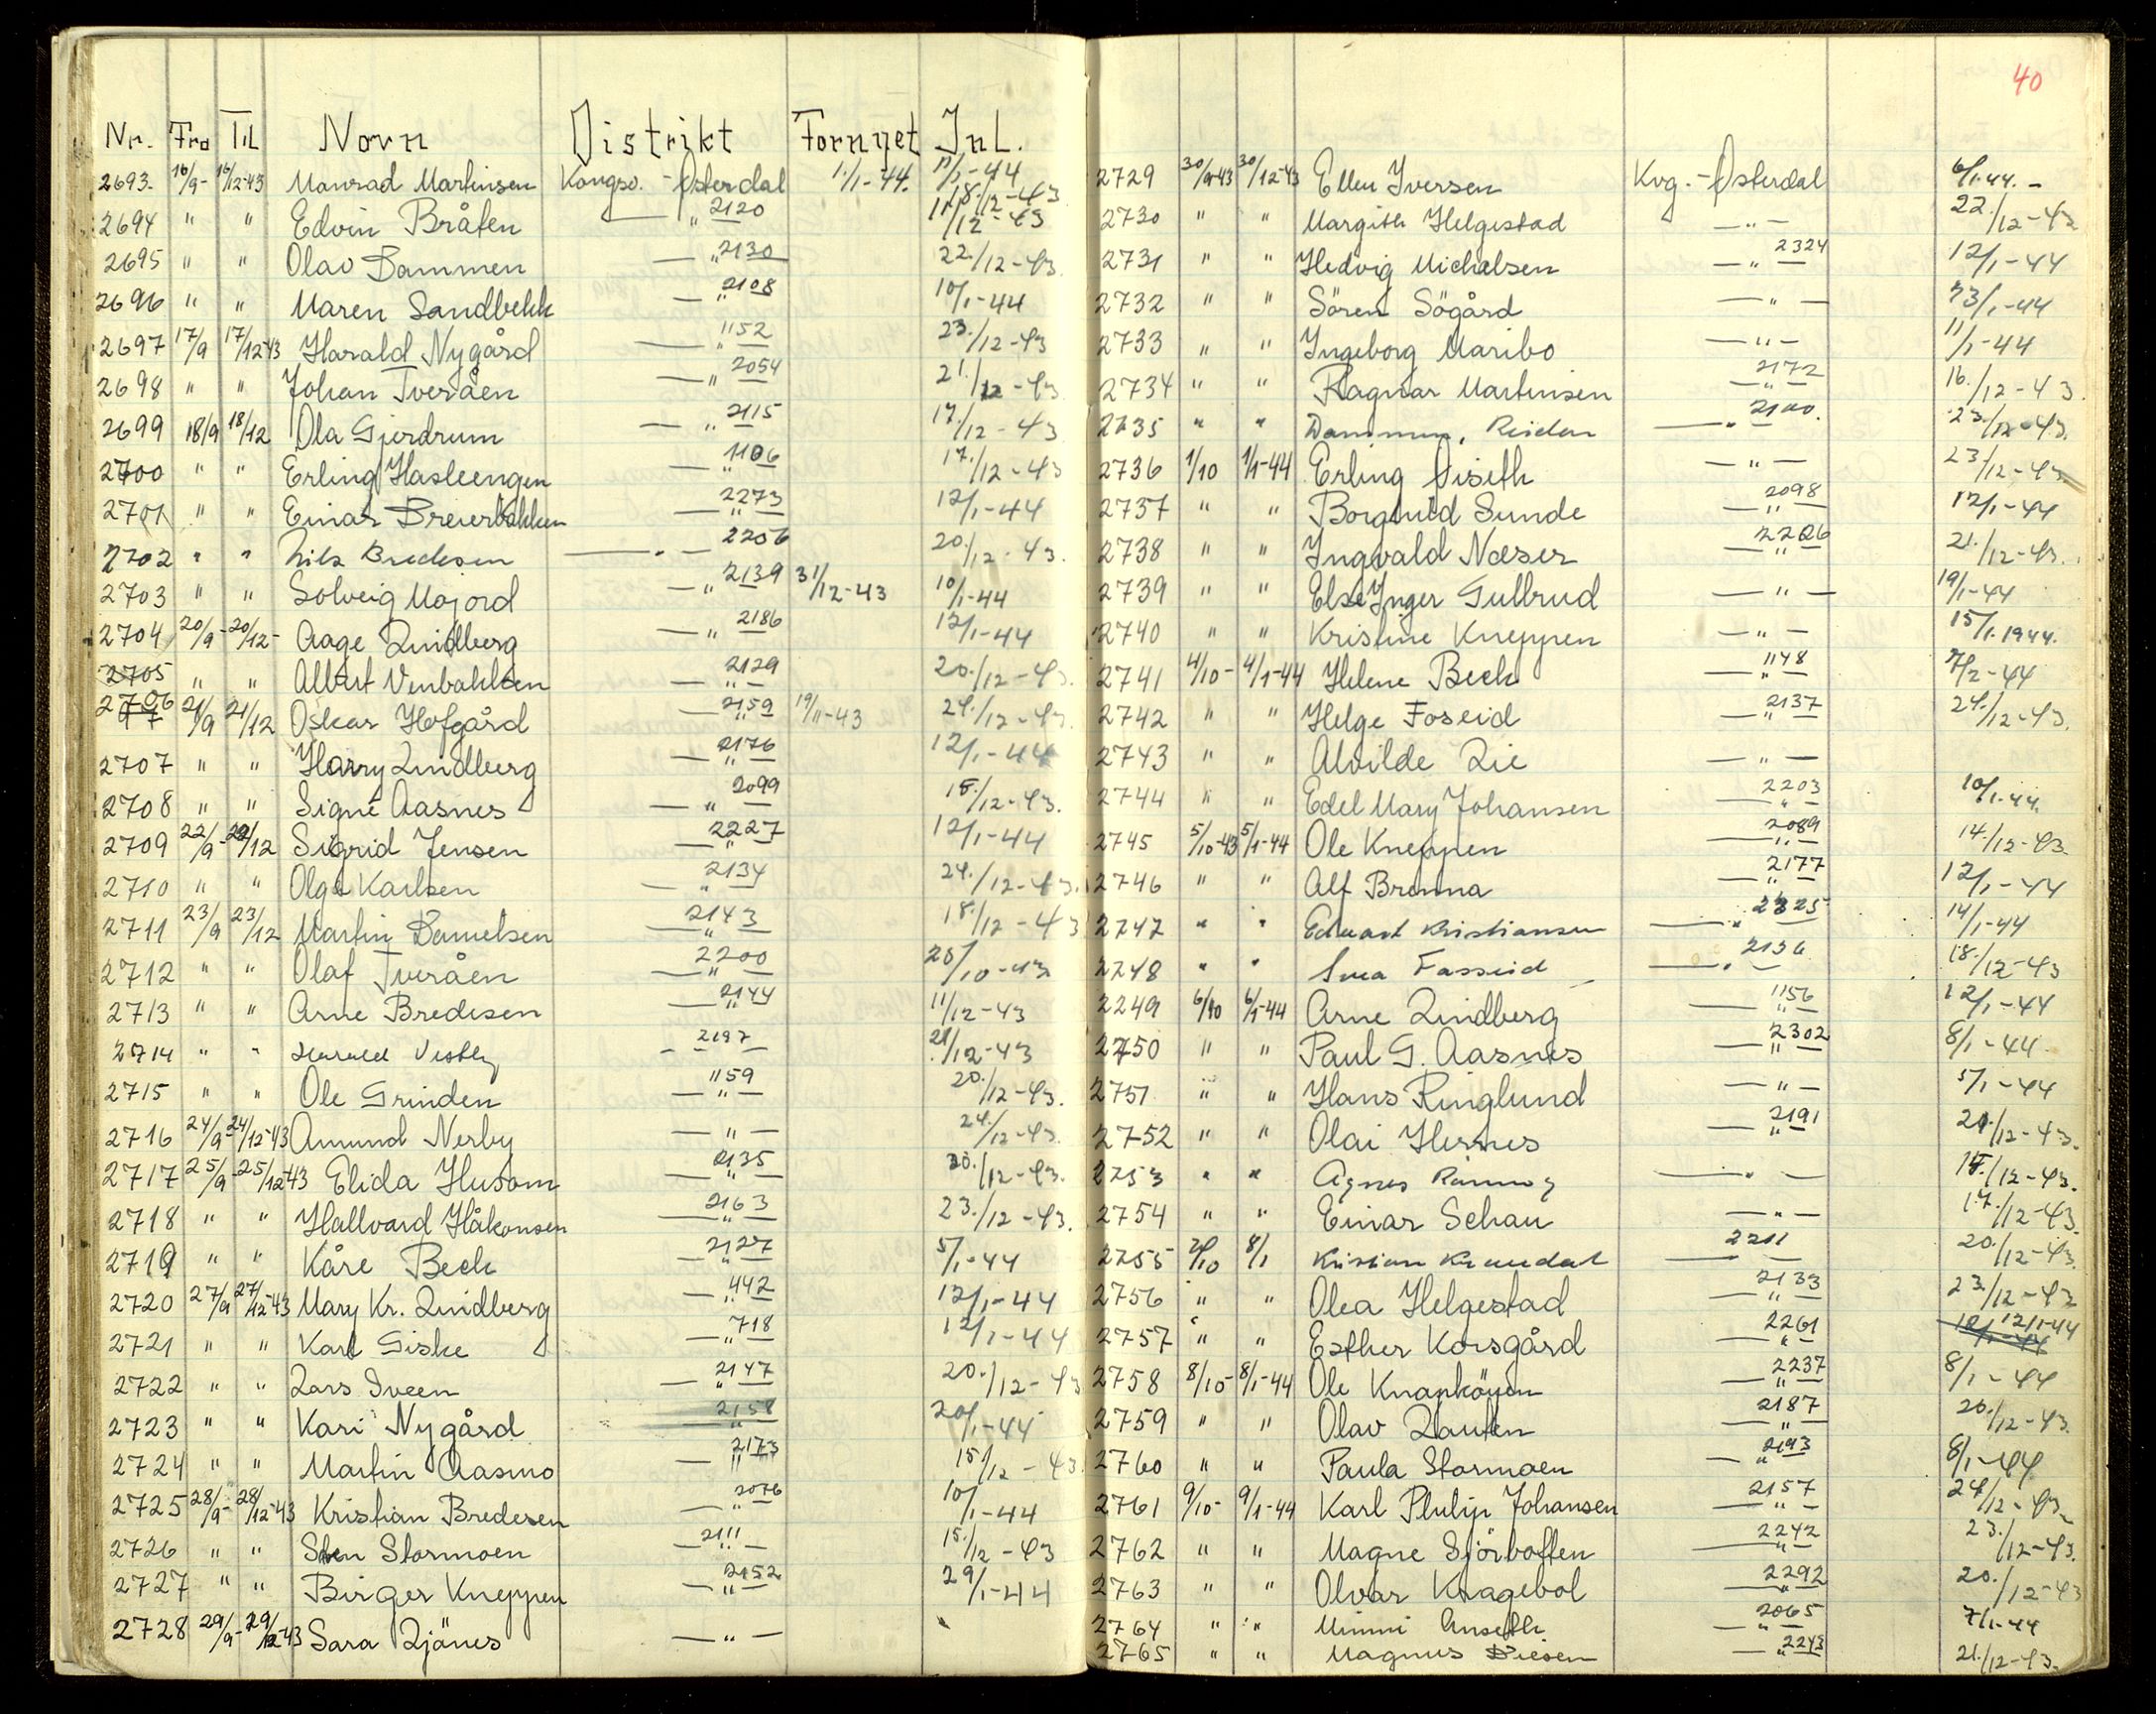 Nr. Fra Til Navn Distrikt Fornyet Inl.
2693. 16/9- 16/12-43 Manrad Martinsen Kongsv. - Østerdal 1./1-44. 17/1-44
2694 " " Edvin Bråten — " 2120 18./12-43 11/12-43
2695 " " Olav Dammen — " 2130 22./12-43.
2696 " " Maren Sandbekk — " 2108 10/1-44
2697 17/9 17/12-43 Harald Nygård — " 1152 23./12-43
2698 " " Johan Tveråen — " 2054 21./12-43
2699 18/9 18/12 Ola Gjerdrum — " 2115 17./12-43
2700 " " Erling Hasleengen — " 1106 17./12-43
2701 " " Einar Breierbakken — " 2273 12/1-44
2702 " " Nils Bredesen — " — 2206 20./12-43.
2703 " " Solveig Mojord — " 2139 31/12-43 10/1-44
2704 20/9- 20/12- Aage Lindberg — " 2186 12/1-44
2705 " " Albert Venbakken — " — 2129 20./12-43.
2706 21/9 21/12 Oskar Hofgård — " 2159 19/11-43 24./12-43.
2707 " " Harry Lindberg — " — 2176 12/1-44
2708 " " Signe Aasnes — " — 2099 15./12-43.
2709 22/9- 22/12 Sigrid Jensen — " — 2227 12/1-44
2710 " " Olga Karlsen — " — 2134 24./12-43.
2711 23/9 23/12 Martin Danielsen — " — 2143 18./12-43
2712 " " Olaf Tveråen — " — 2200 25/10-43
2713 " " Arne Bredesen — " — 2144 11/12-43
2714 " " Harald Vestby - 2197 — 21/12-43
2715 " " Ole Grinden — " — 1159 20./12-43.
2716 24/9- 24/12-43 Amund Nerby — " — 24./12-43.
2717 25/9- 25/12-43 Elida Husom — " — 2135 20./12-43.
2718 " " Hallvard Håkonsen — " — 2163 23./12-43.
2719 " " Kåre Beck — " — 2127 5/1-44
2720 27/9 27/12-43 Mary Kr. Lindberg — " 442 12/1-44
2721 " " Karl Giske — " 718 12/1-44
2722 " " Lars Sveen — " 2147 20./12-43
2723 " " Kari Nygård — " — 2158 20/1-44
2724 " " Martin Aasmo — " 2173 15/12-43
2725 28/9- 28/12-43 Kristian Bredesen — " 2076 10/1-44
2726 " " Sten Stormoen — 2111 — 15./12-43
2727 " " Birger Kneppen — " 2152 29/1-44
2728 29/9- 29/12-43 Sara Ljånes — " —
40
2729 30/9-43 30/12-43 Ellen Iversen Kvg. - Østerdal 6/1-44. -
2730 " " Margith Helgestad — " — 22./12-43
2731 " " Hedvig Michalsen — " 2324 12/1-44
2732 " " Sören Sögård — " — 23/1-44
2733 " " Ingeborg Maribo — " — 11/1-44
2734 " " Ragnar Martinsen — " 2172 16./12-43.
2735 " " Dammen, Reidar — " 2100. 23./12-43.
2736 1/10 1/1-44 Erling Diseth — " — 23/12-43
2737 " " Borghild Sunde — " — 2098 12/1-44
2738 " " Ingvald Næser — " — 2206 21./12-43.
2739 " " Else Inger Gulbrud — " — 19/1-44
2740 " " Kristine Kneppen — " — 15/1.1944.
2741 4/10- 4/1-44 Helene Beck — " — 1148 7/2-44
2742 " " Helge Foseid — " — 2137 24./12-43.
2743 " " Alvilde Lie — " —
2744 " " Edel Mary Johansen — " — 2203 10/1-44.
2745 5/10-43 5/1-44 Ole Kneppen — " — 2089 14./12-43.
2746 " " Alf Brenna — " — 2177 12/1-44
2747 " " Edvart Kristiansen — " 2325 14/1-44
2748 " " Svea Fasseid — " — 2136 18./12-43
2249 6/10 6/1-44 Arne Lindberg — " — 1156 12/1-44
2750 " " Paul G. Aasnes — " — 2302 8/1-44.
2751 " " Hans Ringlund — " — 5/1-44
2752 " " Olai Hernes — " 2191 21./12-43.
2753 " " Agnes — " — 15./12-43.
2754 " " Einar Schau — " — 17./12-43.
2255 7/10 8/1 Kristian 2211 — 20./12-43.
2756 " " Olea Helgestad — " — 2133 23/12-43
2757 " " Esther Korsgård — " — 2261 12/1-44
2758 8/10- 8/1-44 Ole Knapköyen — " — 2237 8/1-44
2759 " " Olav Lauten — " — 2187 20./12-43.
2760 " " Paula Stormoen — " 2193 8/1-44
2761 9/10- 9/1-44 Karl Philip Johansen — " — 2157 24/12-43
2762 " " Magne Sjörbotten — " — 2242 23./12-43.
2763 " " Olvar Kragebol — " — 2292 20./12-43
2764 " " Minni Anseth — " 2065 7/1-44
2765 " " Magnus Diesen — " 2243 21./12-43.